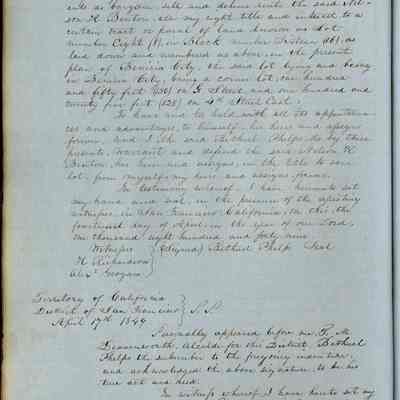 sents do bargain, sell and demise unto the said Nel-
son H Benton, all my right title and interest to a
certain tract or parcel of land known as Lot
number Eight (8) in Block number Sixteen (16) as
laid down and numbered as above in the present
plan of Benicia City, the said lot lying and being
in Benicia City, being a corner lot, one hundred
and fifty feet (150) on G Street and one hundred and
twenty five feet (125) on 4th Street East.
To have and to hold with all the appurtenan-
ces and advantages, to himself, his heirs and assigns
forever. And I the said Bethuel Phelps do by these
presents, warrant and defend the said Nelson H
Benton, his heirs and assigns, in the title to said
lot, from myself, my heirs and assigns, forever.
In testimony whereof, I have hereunto set
my hand and seal, in the presence of the attesting
witnesses, in San Francisco California, on this the
fourteenth day of April, in the year of our Lord,
one thousand eight hundred and forty nine
Witnesses (Signed) Bethuel Phelps Seal
H Richardson
Alexr
Territory of California
District of San Francisco } S.S.
April 17th 1849
Personally appeared before me T. M
Leavenworth, Alcalde for this District, Bethuel
Phelps the subscriber to the foregoing indenture,
and acknowledged the above signature to be his
true act and deed.
In witness whereof I have hereto set my